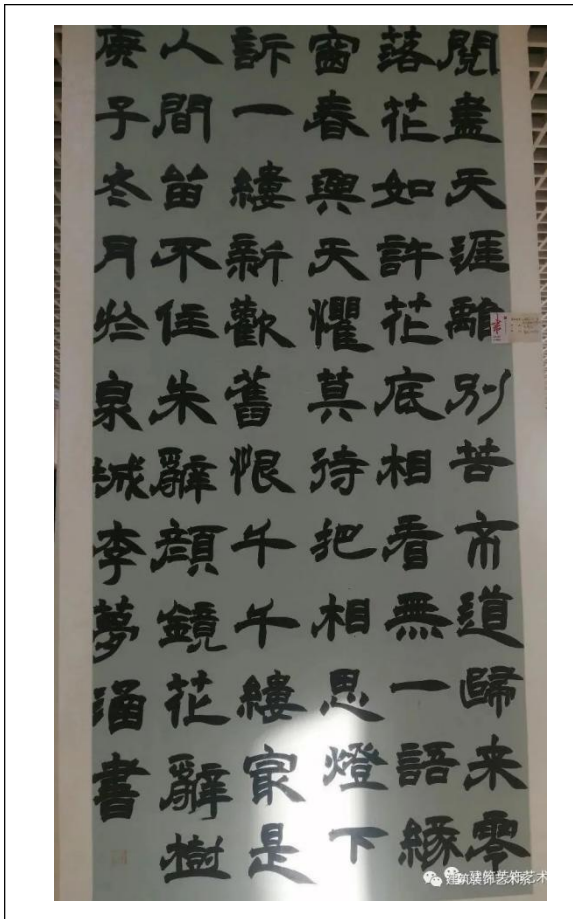 閱盡天涯離別苦不道歸来零
落花如許花底相看無一語綠
窗春與天懼莫待把相思燈下
訴一縷新歡舊恨千千縷冣是
人間留不住朱辭顏鏡花辭樹
庚子冬月於泉城李夢涵書
建筑装饰艺术系